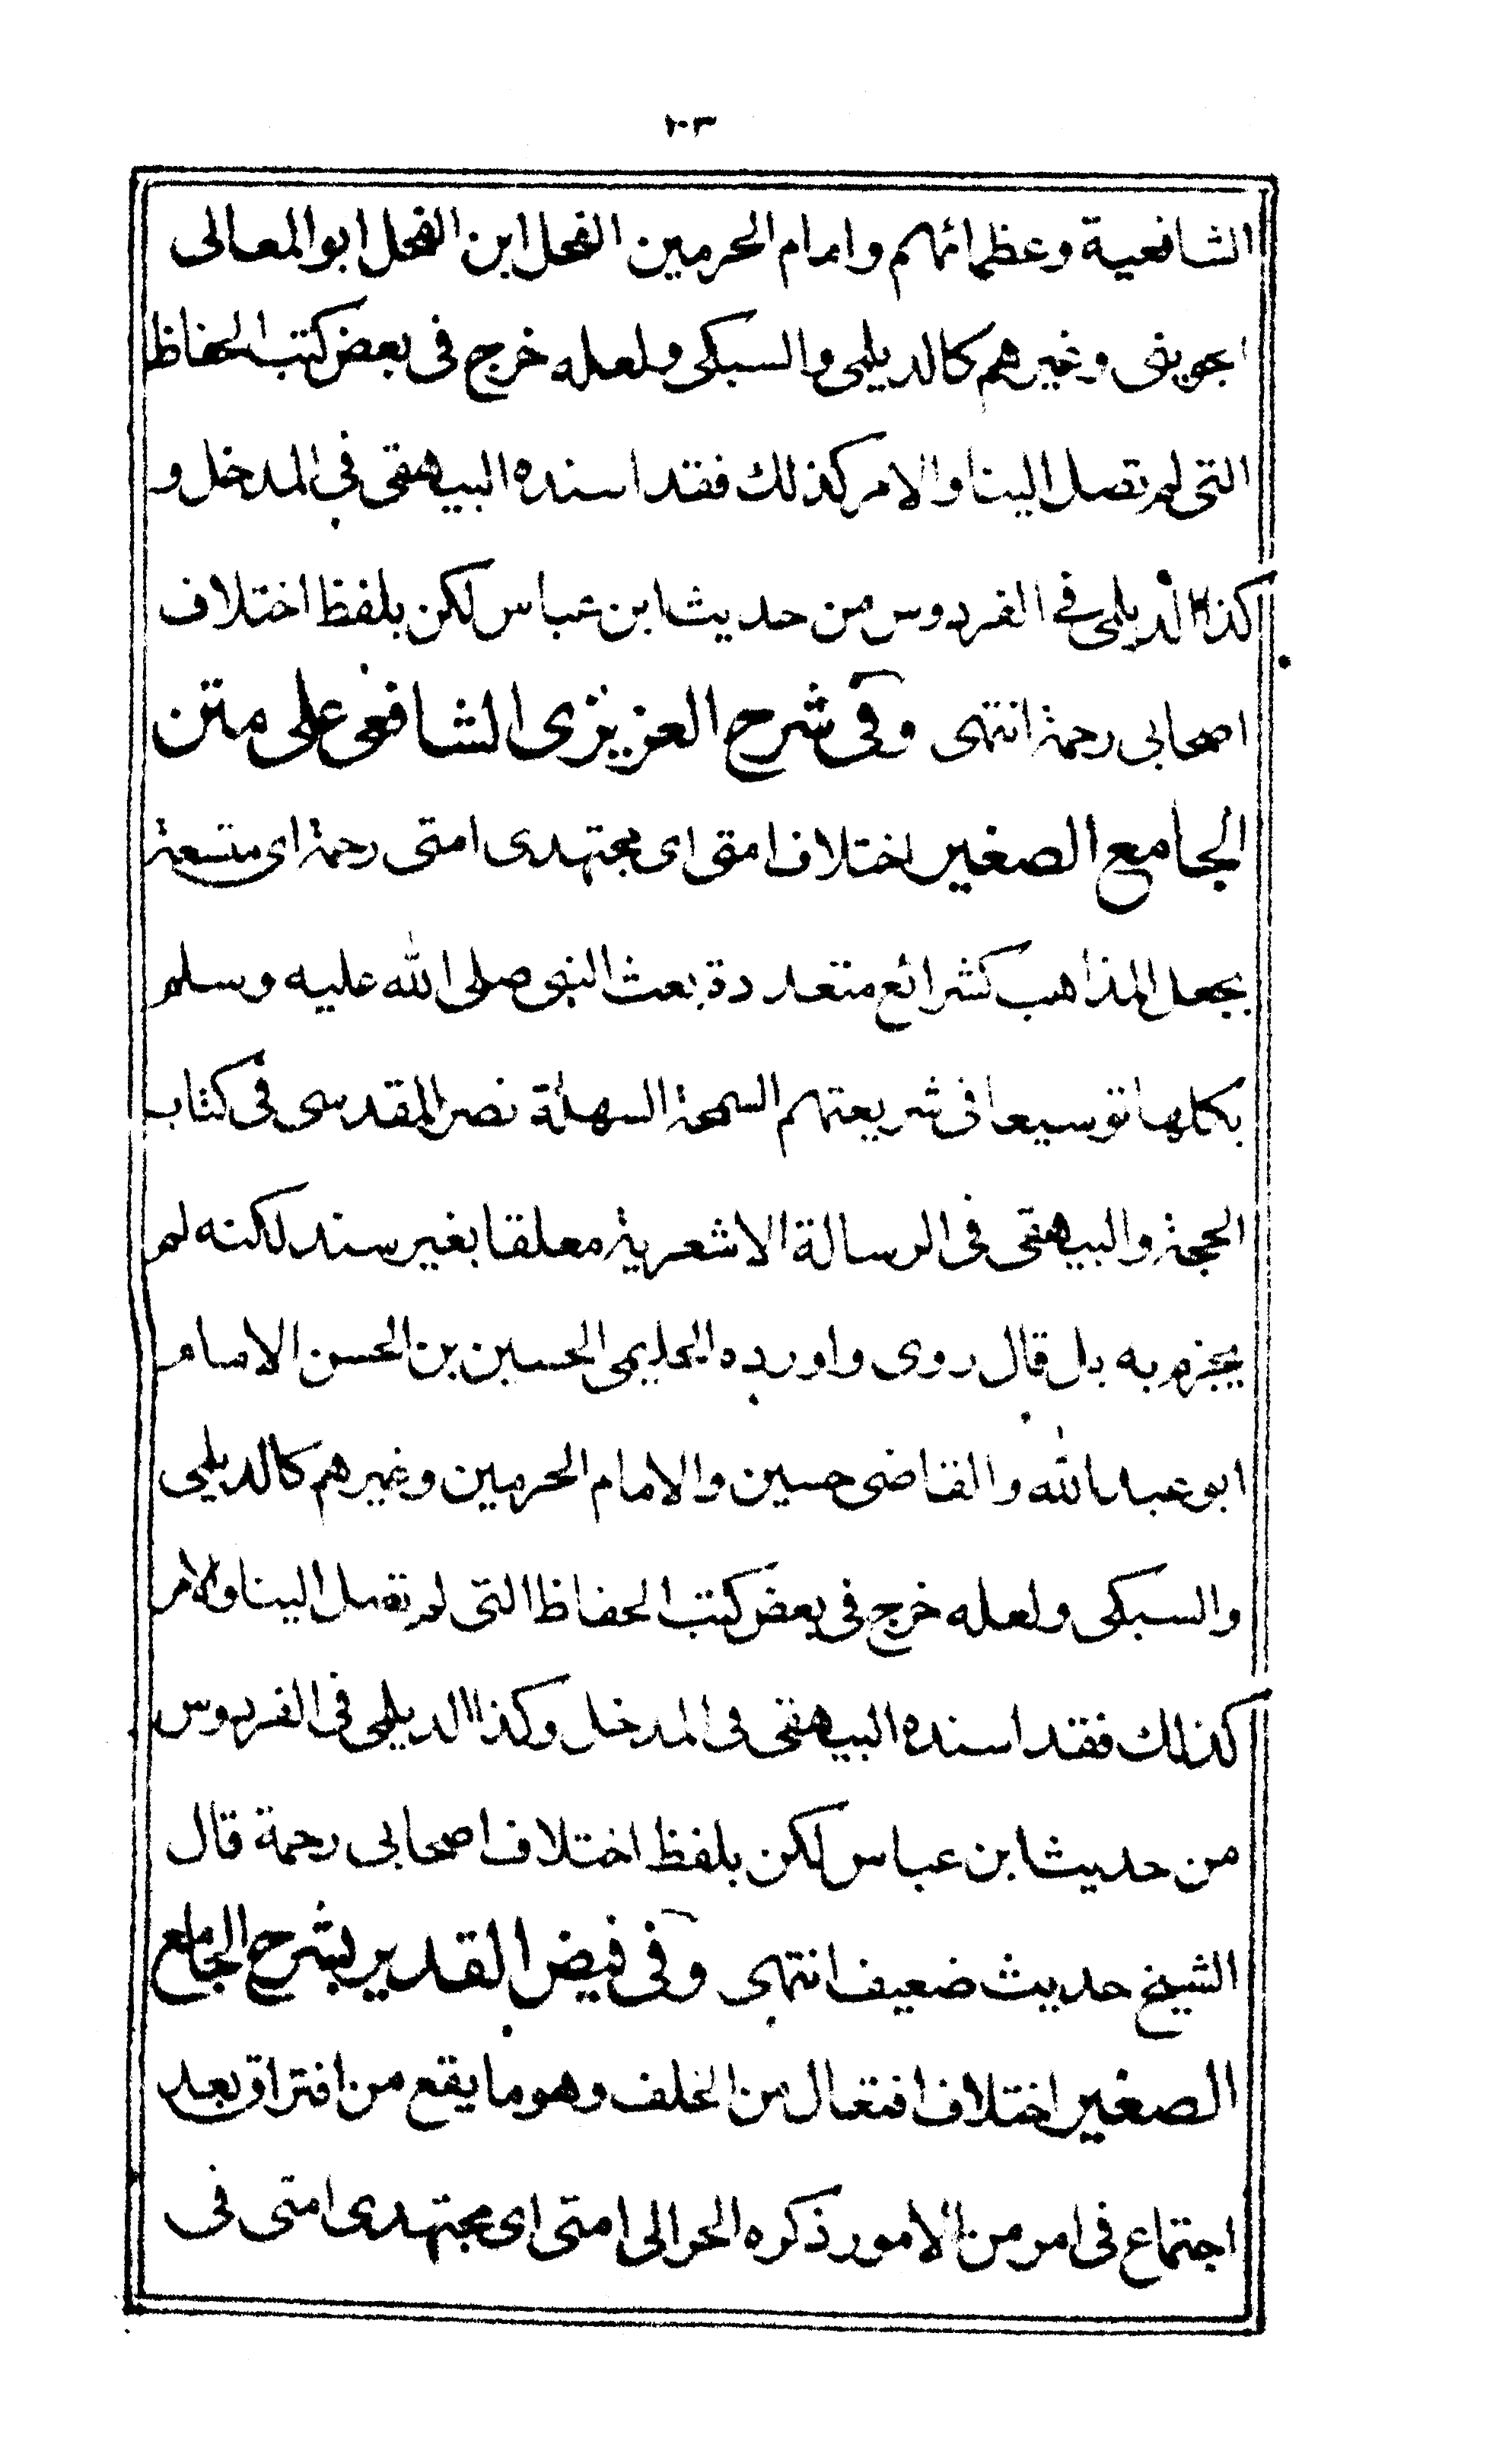 ١٠٣
الشافعية وعظمائهم وامام الحرمين الفحل ابن الفحل ابو المعالى
الجوينى وغيرهم كالديلمى والسبكى ولعله خرج فى بعض كتب الحفاظ
التى لم تصل الينا والامر كذلك فقد اسنده البيهقى فى المدخل و
كذا الديلمى فى الفردوس من حديث ابن عباس لكن بلفظ اختلاف
اصحابى رحمة انتهى وفى شرح العزيزى الشافعى على متن
الجامع الصغير اختلاف امتى اى مجتهدى امتى رحمة اى متسعة
بجعل المذاهب كشرائع متعددة بعث النبى صلى الله عليه وسلم
بكلها توسيعا فى شريعتهم السمحة السهلة نصر المقدسى فى كتاب
الحجة والبيهقى فى الرسالة الاشعرية معلقا بغير سند لكنه لم
يجزم به بل قال روى واورده الحليمى الحسين بن الحسن الامام
ابو عبد الله والقاضى حسين والامام الحرمين وغيرهم كالديلمى
والسبكى ولعله خرج فى بعض كتب الحفاظ التى لم تصل الينا والامر
كذلك فقد اسنده البيهقى فى المدخل وكذا الديلمى فى الفردوس
من حديث ابن عباس لكن بلفظ اختلاف اصحابى رحمة قال
الشيخ حديث ضعيف انتهى وفى فيض القدير بشرح الجامع
الصغير اختلاف افتعال من الخلف وهو ما يقع من افتراق بعد
اجتماع فى امر من الامور ذكره الحرالى امتى اى مجتهدى امتى فى